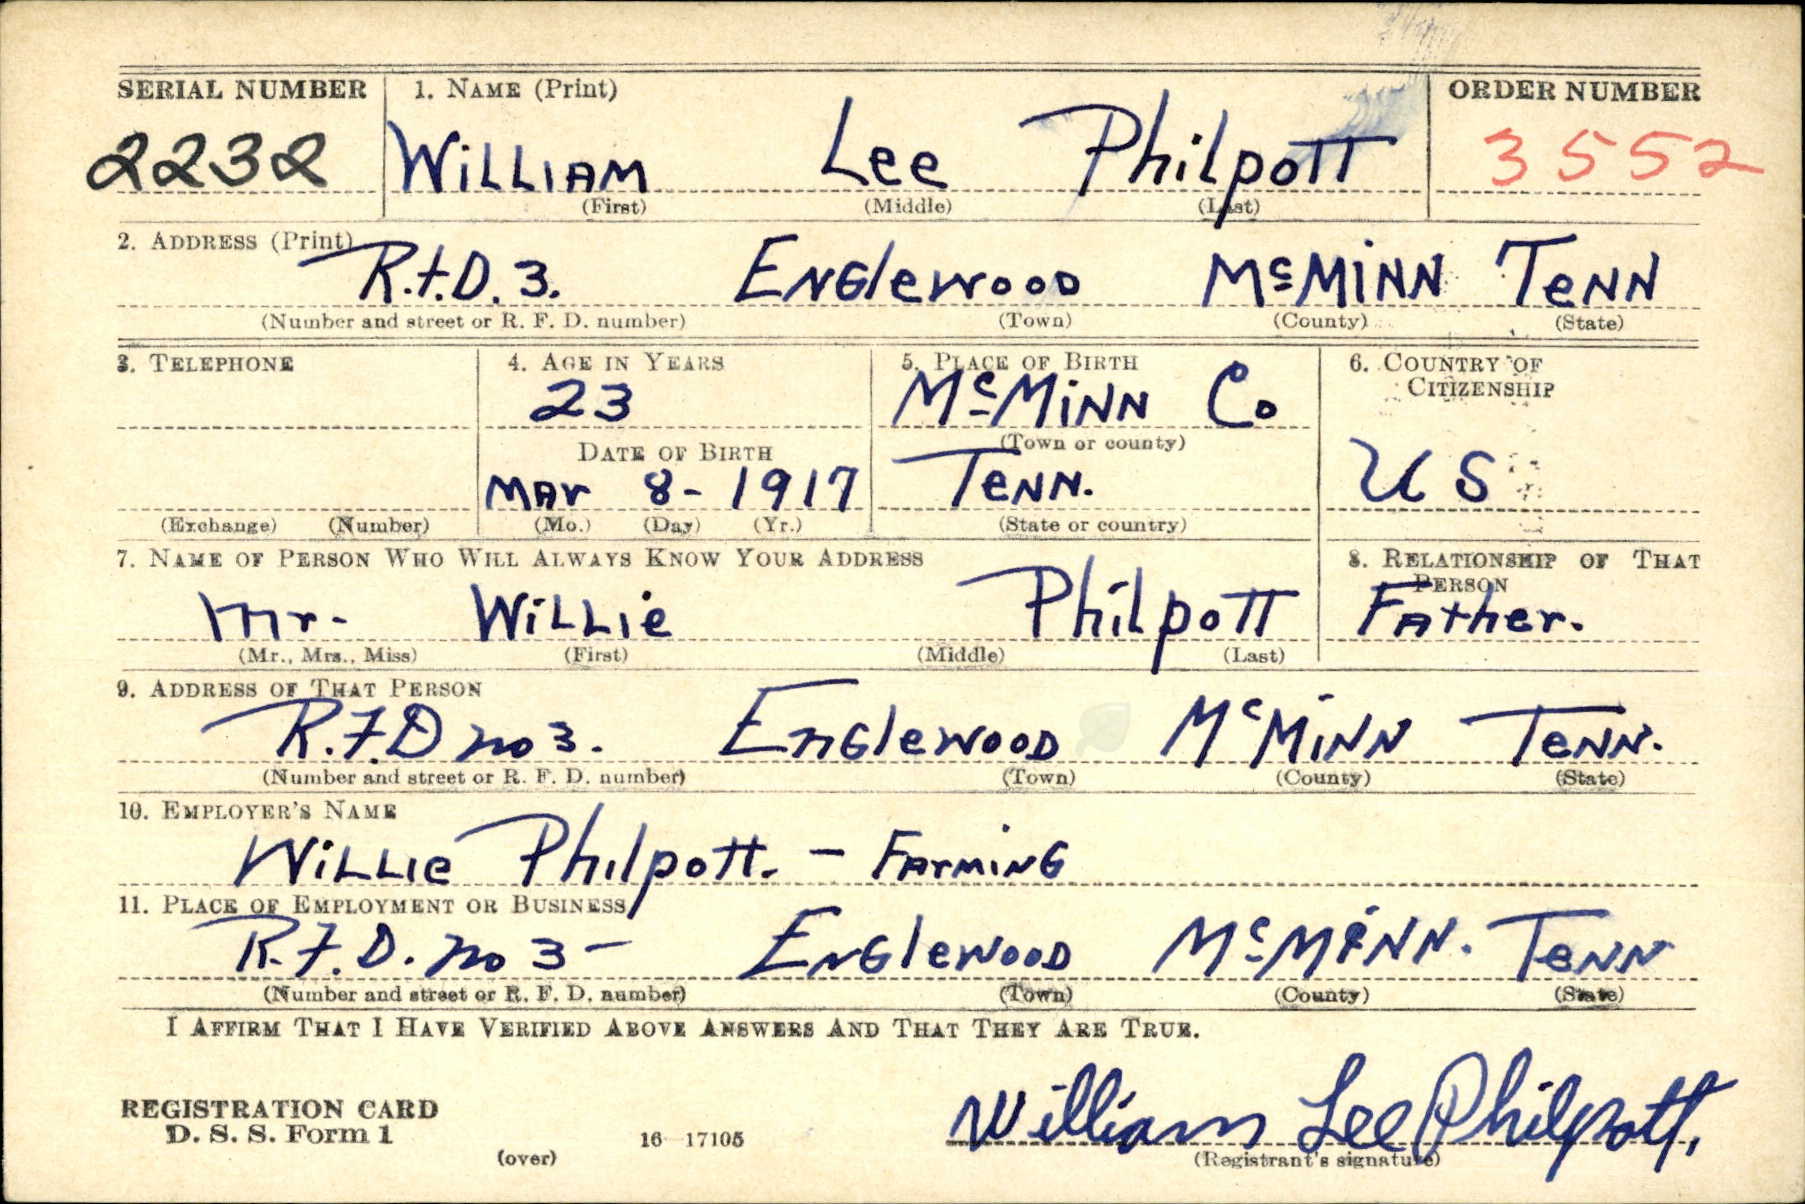 SERIAL NUMBER 1. NAME (Print) ORDER NUMBER
2232 WiLLIAM Lee PhilpoTT 3552
(First) (Middle) (Last)
2. ADDRESS (Print)
R.F.D. 3. ENGlewooD McMiNN TeNN
(Number and street or R. F. D. number) (Town) (County) (State)
3. TELEPHONE 4. AGE IN YEARS 5. PLACE OF BIRTH 6. COUNTRY OF
CITIZENSHIP
23 McMiNN Co
DATE OF BIRTH (Town or county)
MAr 8- 1917 TeNN. US
(Exchange) (Number) (Mo.) (Day) (Yr.) (State or country)
7. NAME OF PERSON WHO WILL ALWAYS KNOW YOUR ADDRESS 8. RELATIONSHIP OF THAT
PERSON
Mr. WiLLie PhilpoTT FAther.
(Mr., Mrs., Miss) (First) (Middle) (Last)
9. ADDRESS OF THAT PERSON
R.F.D no 3. EnGlewooD McMiNN TeNN.
(Number and street or R. F. D. number) (Town) (County) (State)
10. EMPLOYER'S NAME
WiLLie Philpott. - FArmiNG
11. PLACE OF EMPLOYMENT OR BUSINESS
R.F.D. no 3- ENGlewooD McMiNN. TeNN
(Number and street or R. F. D. number) (Town) (County) (State)
I AFFIRM THAT I HAVE VERIFIED ABOVE ANSWERS AND THAT THEY ARE TRUE.
REGISTRATION CARD
D. S. S. Form 1 16 17105 William Lee Philpott.
(over) (Registrant's signature)